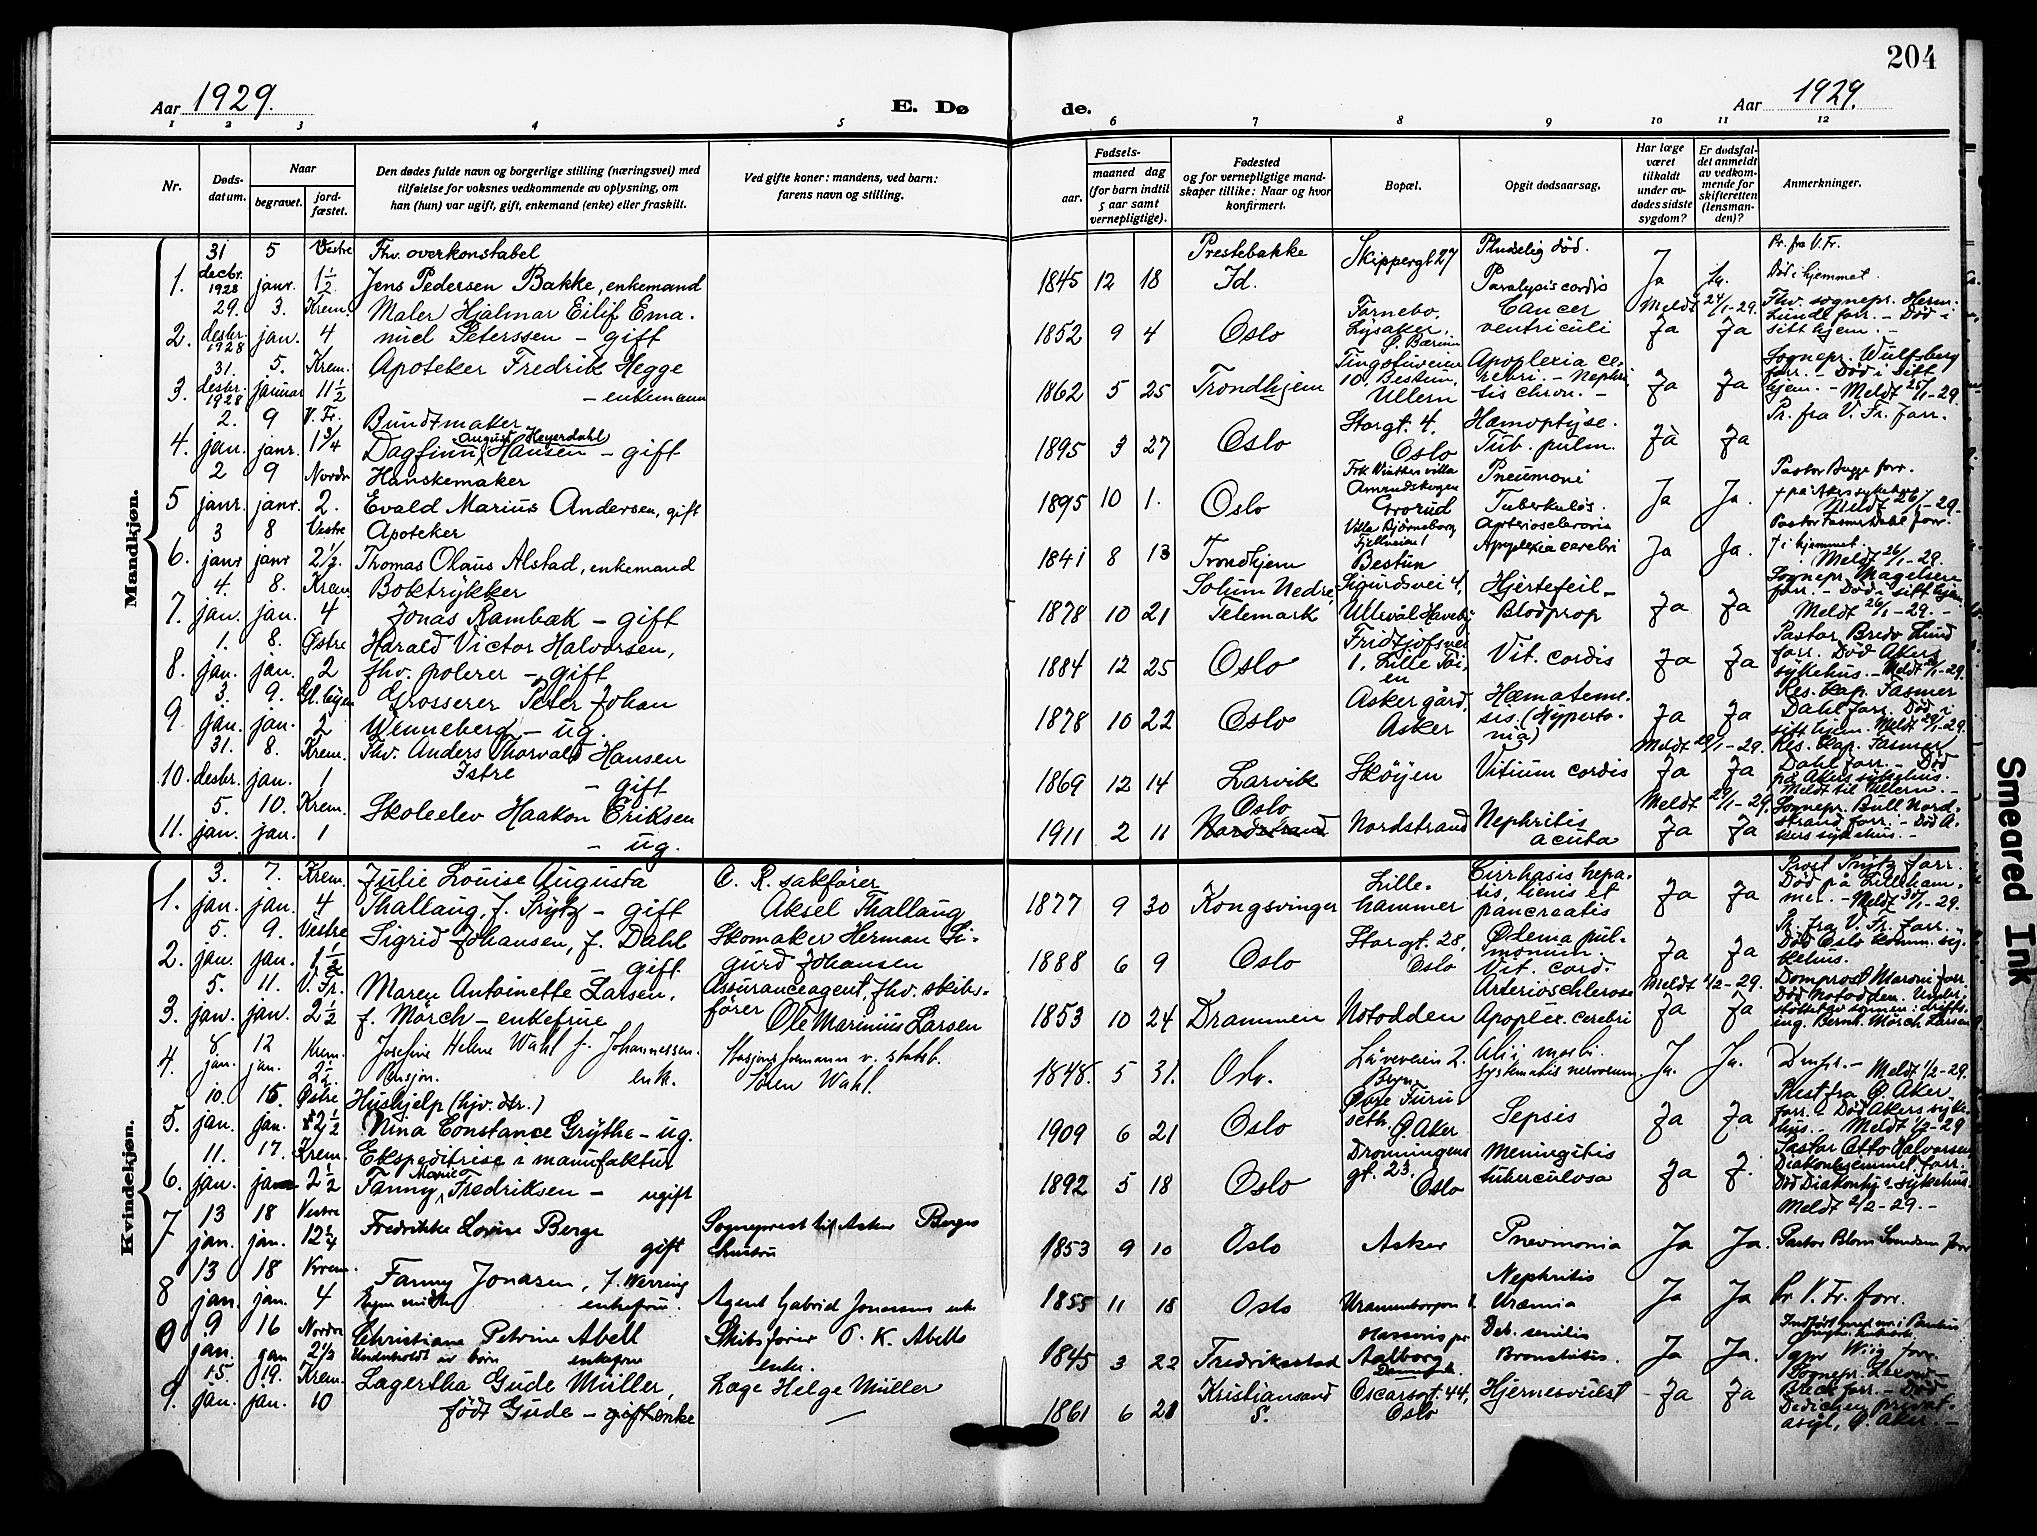 204
Aar 1929.
E. Dø
de.
Aar 1929.
1 2 3 4 5 6 7 8 9 10 11 12
Nr.
Døds-
datum.
Naar
begravet.
jord-
fæstet.
Den dødes fulde navn og borgerlige stilling (næringsvei) med
tilføielse for voksnes vedkommende av oplysning, om
han (hun) var ugift, gift, enkemand (enke) eller fraskilt.
Ved gifte koner: mandens, ved barn:
farens navn og stilling.
Fødsels-
aar.
maaned dag
(for barn indtil
5 aar samt
vernepligtige).
Fødested
og for vernepligtige mand-
skaper tillike: Naar og hvor
konfirmert.
Bopæl.
Opgit dødsaarsag.
Har læge
været
tilkaldt
under av-
dødes sidste
sygdom?
Er dødsfal-
det anmeldt
av vedkom-
mende for
skifteretten
(lensman-
den)?
Anmerkninger.
Mandkjøn.
31 5 Vestre Thv. overkonstabel Prestebakke Skippergt 27 Pludselig død. Pr. fra V. Fr.
1. decbr. 1928 janr. 1 1/2 Jens Pedersen Bakke, enkemand 1845 12 18 Id. Paralysis cordis Ja Død i hjemmet.
29. 3. Krem. Maler Hjalmar Eilif Ema- Fornebo, Cancer Meldt 24/1-29. Thv. sognepr. Herm.
2. desbr. 1928 jan. 4 nuel Peterssen - gift 1852 9 4 Oslo Lysaker, Ø. Bærum ventriculi Ja Ja Lunde forr. - Død i
sitt hjem. -
31. 5. Krem. Apoteker Fredrik Hegge Tingstuveien Apoplexia ce- Sognepr. Wulfsberg
3. desbr. 1928 januar 11 1/2 - enkemann 1862 5 25 Trondhjem 10, Bestun, Ullern rebri. - Nephri tis chron. - Ja Ja forr. - Død i sitt
hjem. - Meldt 25/1-29.
2. 9 V. Fr. Bundtmaker Storgt. 4, Hæmoptyse. Pr. fra V. Fr. forr.
4. jan. janr. 1 3/4 Dagfinn August Heyerdahl Hansen - gift 1895 3 27 Oslo Oslo Tub. pulm. Ja Ja
2 9 Nordre Hanskemaker Frk. Vinthers villa Pneumoni Pastor Bugge forr.
5 janr. janr. 2. Evald Marius Andersen, gift 1895 10 1. Oslo Amrudskogen Grorud Tuberkuløs. Ja Ja. † på Akers sykehus
Meldt 26/1-29.
3 8 Vestre Apoteker Villa Bjørneborg Arteriosclerosis Pastor Fasmer Dahl forr.
6. janr janr 2 1/2. Thomas Olaus Alstad, enkemand 1841 8 13 Trondhjem Fjellveien 1 Bestun Apoplexia cerebri Ja Ja. † i hjemmet.
Meldt 26/1-29.
4. 8. Krem. Boktrykker Solum Nedre Sigurdsvei 4, Hjertefeil - Sognepr. Magelssen
7. jan. jan. 4 Jonas Rambæk - gift 1878 10 21 Telemark Ullevål Haveby Blodprop Ja Ja forr. - Død i sitt hjem.
Meldt 26/1-29. -
1. 8. Østre Harald Victor Halvorsen, Fridtjofsvei Pastor Bredo Lund
8. jan. jan. 2 fhv. polerer - gift 1884 12 25 Oslo 1, Lille Tøi- en Vit. cordis Ja Ja forr. Død Akers
sykehus. - Meldt 29/1-29.
3. 9. Gl. byen Grosserer Peter Johan Asker gård, Hæmateme- Res. kap. Fasmer
9. jan. jan. 2 Wenneberg - ug. 1878 10 22 Oslo Asker sis (Hyperto- nia) Ja Ja Dahl forr. Død i
sitt hjem. Meldt 29/1-29.
31. 8. Krem. Thv. Anders Thorvald Hansen Meldt 29/1-29. Res. kap. Fasmer
10. desbr. jan. 1 Istre - gift 1869 12 14 Larvik Skøyen Vitium cordis Ja Ja Dahl forr. - Død
på Akers sykehus.
Meldt til Ullern. -
5. 10. Krem. Skoleelev Haakon Eriksen Oslo Meldt 29/1-29. Sognepr. Bull Nord-
11. jan. jan. 1 - ug. 1911 2 11 Nordstrand Nordstrand Nephritis acuta Ja Ja strand forr. - Død A-
kers sykehus. -
Kvindekjøn.
3. 7. Krem. Julie Louise Augusta O. R. sakfører Lille- Cirrhosis hepa- Prost Frytz forr.
1. jan. jan. 4 Thallaug, f. Frytz - gift Aksel Thallaug 1877 9 30 Kongsvinger hammer tis, lienis et pancreatis Ja Ja Død på Lilleham-
mer. - Meldt 30/1-29.
5. 9. Vestre Sigrid Johansen, f. Dahl Skomaker Herman Si- Storgt. 28, Ødema pul- Pr. fra V. Fr. forr. -
2. jan. jan. 1 1/2 - gift. gurd Johansen 1888 6 9 Oslo Oslo monum. Vit. cord. Ja Ja Død Oslo komm. sy-
kehus.
5. 11. V. Fr. Maren Antoinette Larsen, Assuranceagent, fhv. skibs- Arteriosclerose Meldt 1/2-29. Domprost Maroni forr.
3. jan. jan. 2 1/2 f. Mørch - enkefrue fører Ole Marinius Larsen 1853 10 24 Drammen Notodden Apoplex. cerebri Ja Ja Død Notodden. Under-
støttet av sønnen: drifts-
ing. Bernh. Mørch Larsen
8. 12 Krem. Josefine Helene Wahl f. Johannessen. Stasjonsformann v. statsb. Løveveien 2. Alii morbi
4. jan. jan. 2 1/2. Pensjon. enk. Søren Wahl. 1848. 5 31. Oslo. Bryn. systematis nervorum. Ja. Ja. Dmpr. - Meldt 1/2-29.
10. 15. Østre Hushjelp (hjv. dtr.) Øvre Furu- Prest fra Ø. Aker
5. jan. jan. 2 1/2 Nina Constance Grythe - ug. 1909 6 21 Oslo seth, Ø. Aker Sepsis Ja Ja forr. - Død Akers syke-
hus. - Meldt 1/2-29
11. 17. Krem. Ekspeditrise i manufaktur Dronningens Meningitis Pastor Otto Halvorsen
6. jan. jan 2 1/2 Fanny Marie Fredriksen - ugift 1892 5 18 Oslo gt. 23, Oslo tuberculosa Ja J. Diakonhjemmet forr.
Død Diakonhj.s sykehus.
Meldt 2/2-29. -
7 13 18 Vestre Fredrikke Lovise Berge Sogneprest til Asker Berges
jan. jan. 12 1/4 gift hustru 1853 9 10 Oslo Asker Pnevmonia Ja Ja. Pastor Blom Svendsen forr
13 18 Krem. Fanny Jonassen, f. Werring Nephritis
8 jan. jan. 4 Egne midler enkefru. Agent Gabriel Jonassens enke 1855 11 18 Oslo Uranienborgvn Uræmia Ja Ja Pr. V. Fr. forr.
9 16 Nordre Christiane Petrine Abell Skibsfører O. K. Abells Deb. senilis
jan. jan 2 1/2 Underholdt av børn enkefrue enke. 1845 3 22 Fredriksstad Aalborg Danmark Bronchitis. Ja Ja.
15. 19. Krem. Lagertha Gude Müller, Læge Helge Müller Kristiansand Oscarsgt. 44, Hjernesvulst Ja Ja
9. jan. jan. 10 født Gude - gift enke 1861 6 21 S. Oslo Breck forr. - Død
Dedichen privat-
asyl, Ø. Aker. -
Smeared Ink